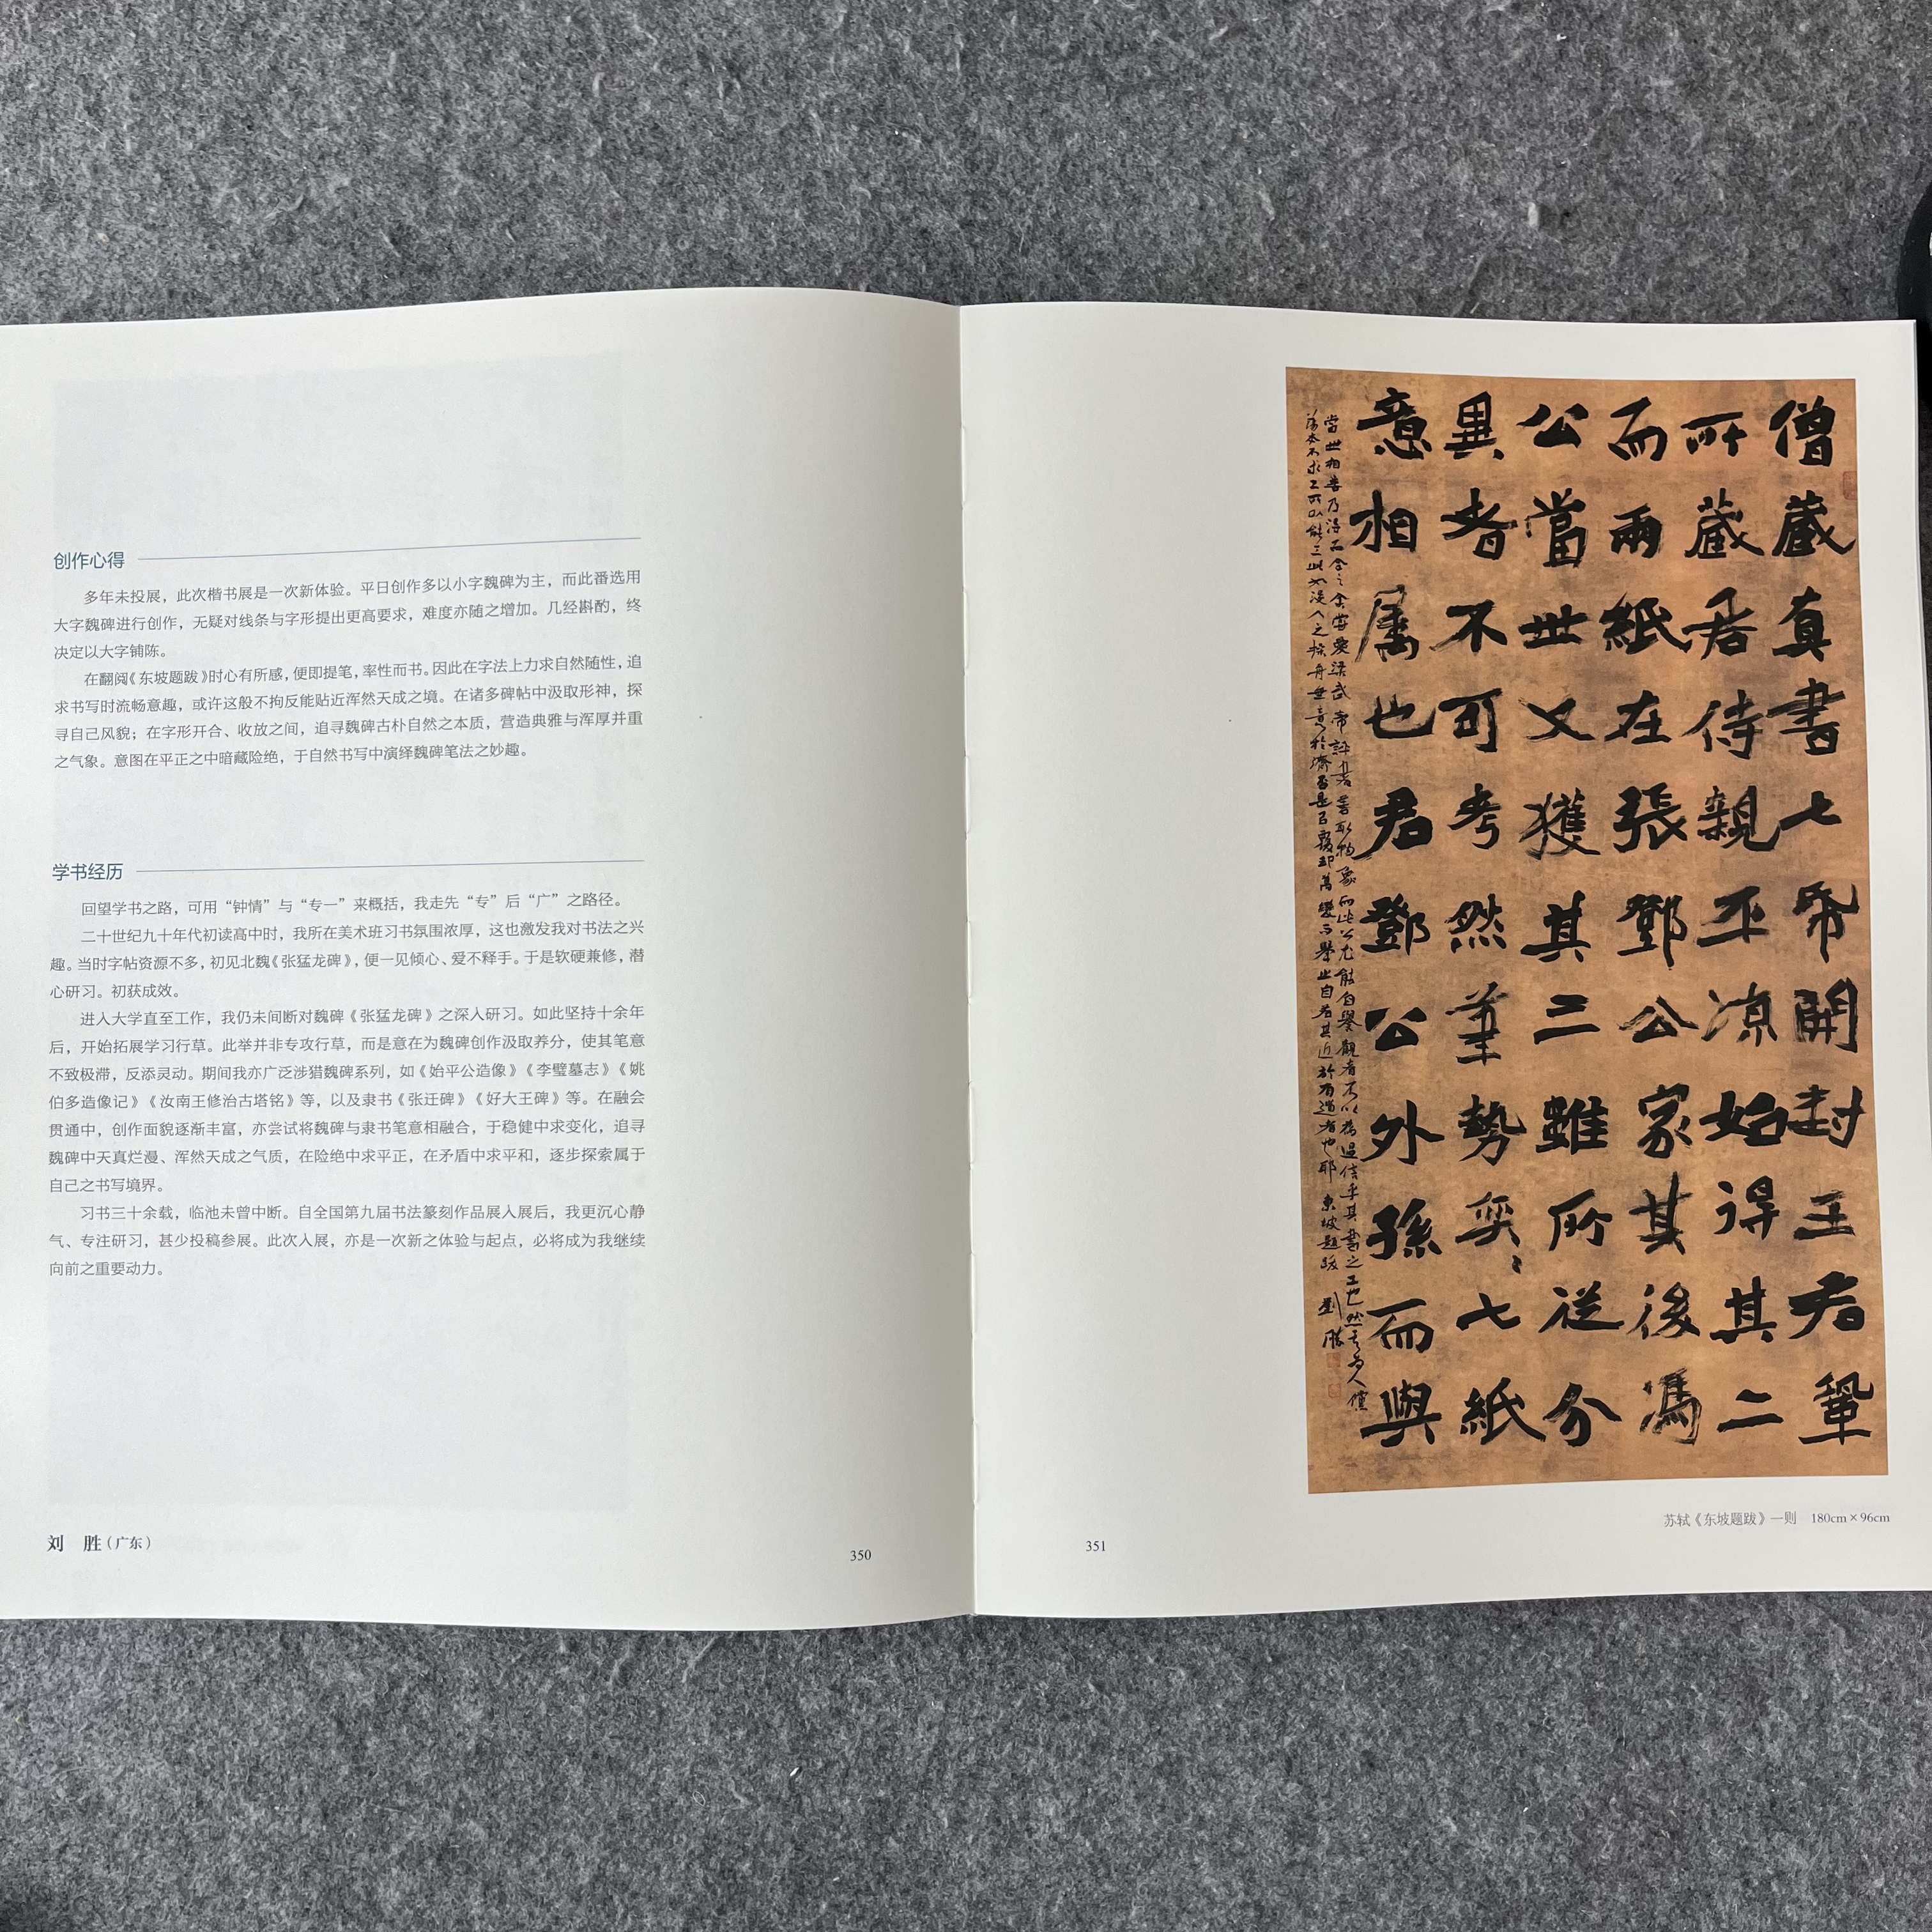 创作心得
多年未投展，此次楷书展是一次新体验。平日创作多以小字魏碑为主，而此番选用
大字魏碑进行创作，无疑对线条与字形提出更高要求，难度亦随之增加。几经斟酌，终
决定以大字铺陈。
在翻阅《东坡题跋》时心有所感，便即提笔，率性而书。因此在字法上力求自然随性，追
求书写时流畅意趣，或许这般不拘反能贴近浑然天成之境。在诸多碑帖中汲取形神，探
寻自己风貌；在字形开合、收放之间，追寻魏碑古朴自然之本质，营造典雅与浑厚并重
之气象。意图在平正之中暗藏险绝，于自然书写中演绎魏碑笔法之妙趣。
学书经历
回望学书之路，可用“钟情”与“专一”来概括，我走先“专”后“广”之路径。
二十世纪九十年代初读高中时，我所在美术班习书氛围浓厚，这也激发我对书法之兴
趣。当时字帖资源不多，初见北魏《张猛龙碑》，便一见倾心、爱不释手。于是软硬兼修，潜
心研习。初获成效。
进入大学直至工作，我仍未间断对魏碑《张猛龙碑》之深入研习。如此坚持十余年
后，开始拓展学习行草。此举并非专攻行草，而是意在为魏碑创作汲取养分，使其笔意
不致极滞，反添灵动。期间我亦广泛涉猎魏碑系列，如《始平公造像》《李璧墓志》《姚
伯多造像记》《汝南王修治古塔铭》等，以及隶书《张迁碑》《好大王碑》等。在融会
贯通中，创作面貌逐渐丰富，亦尝试将魏碑与隶书笔意相融合，于稳健中求变化，追寻
魏碑中天真烂漫、浑然天成之气质，在险绝中求平正，在矛盾中求平和，逐步探索属于
自己之书写境界。
习书三十余载，临池未曾中断。自全国第九届书法篆刻作品展入展后，我更沉心静
气、专注研习，甚少投稿参展。此次入展，亦是一次新之体验与起点，必将成为我继续
向前之重要动力。
刘 胜（广东）
350
僧藏真書七帋開封王君鞏
所藏君侍親平涼始得其二
而兩紙在張鄧公家其後馮
公當世又獲其三雖所從分
異者不可考然筆勢奕〻七紙
意相屬也君鄧公外孫而與
當世相善乃得而合之余嘗愛梁武帝評書善取物象而此公尤能自譽觀者不以為過信乎其書之工也然其為人儻
蕩本不求工所以能工此如沒人之操舟無意於濟否是以覆卻萬變而舉止自若其近於有道者也耶 東坡題跋 劉勝
苏轼《东坡题跋》一则 180cm×96cm
351